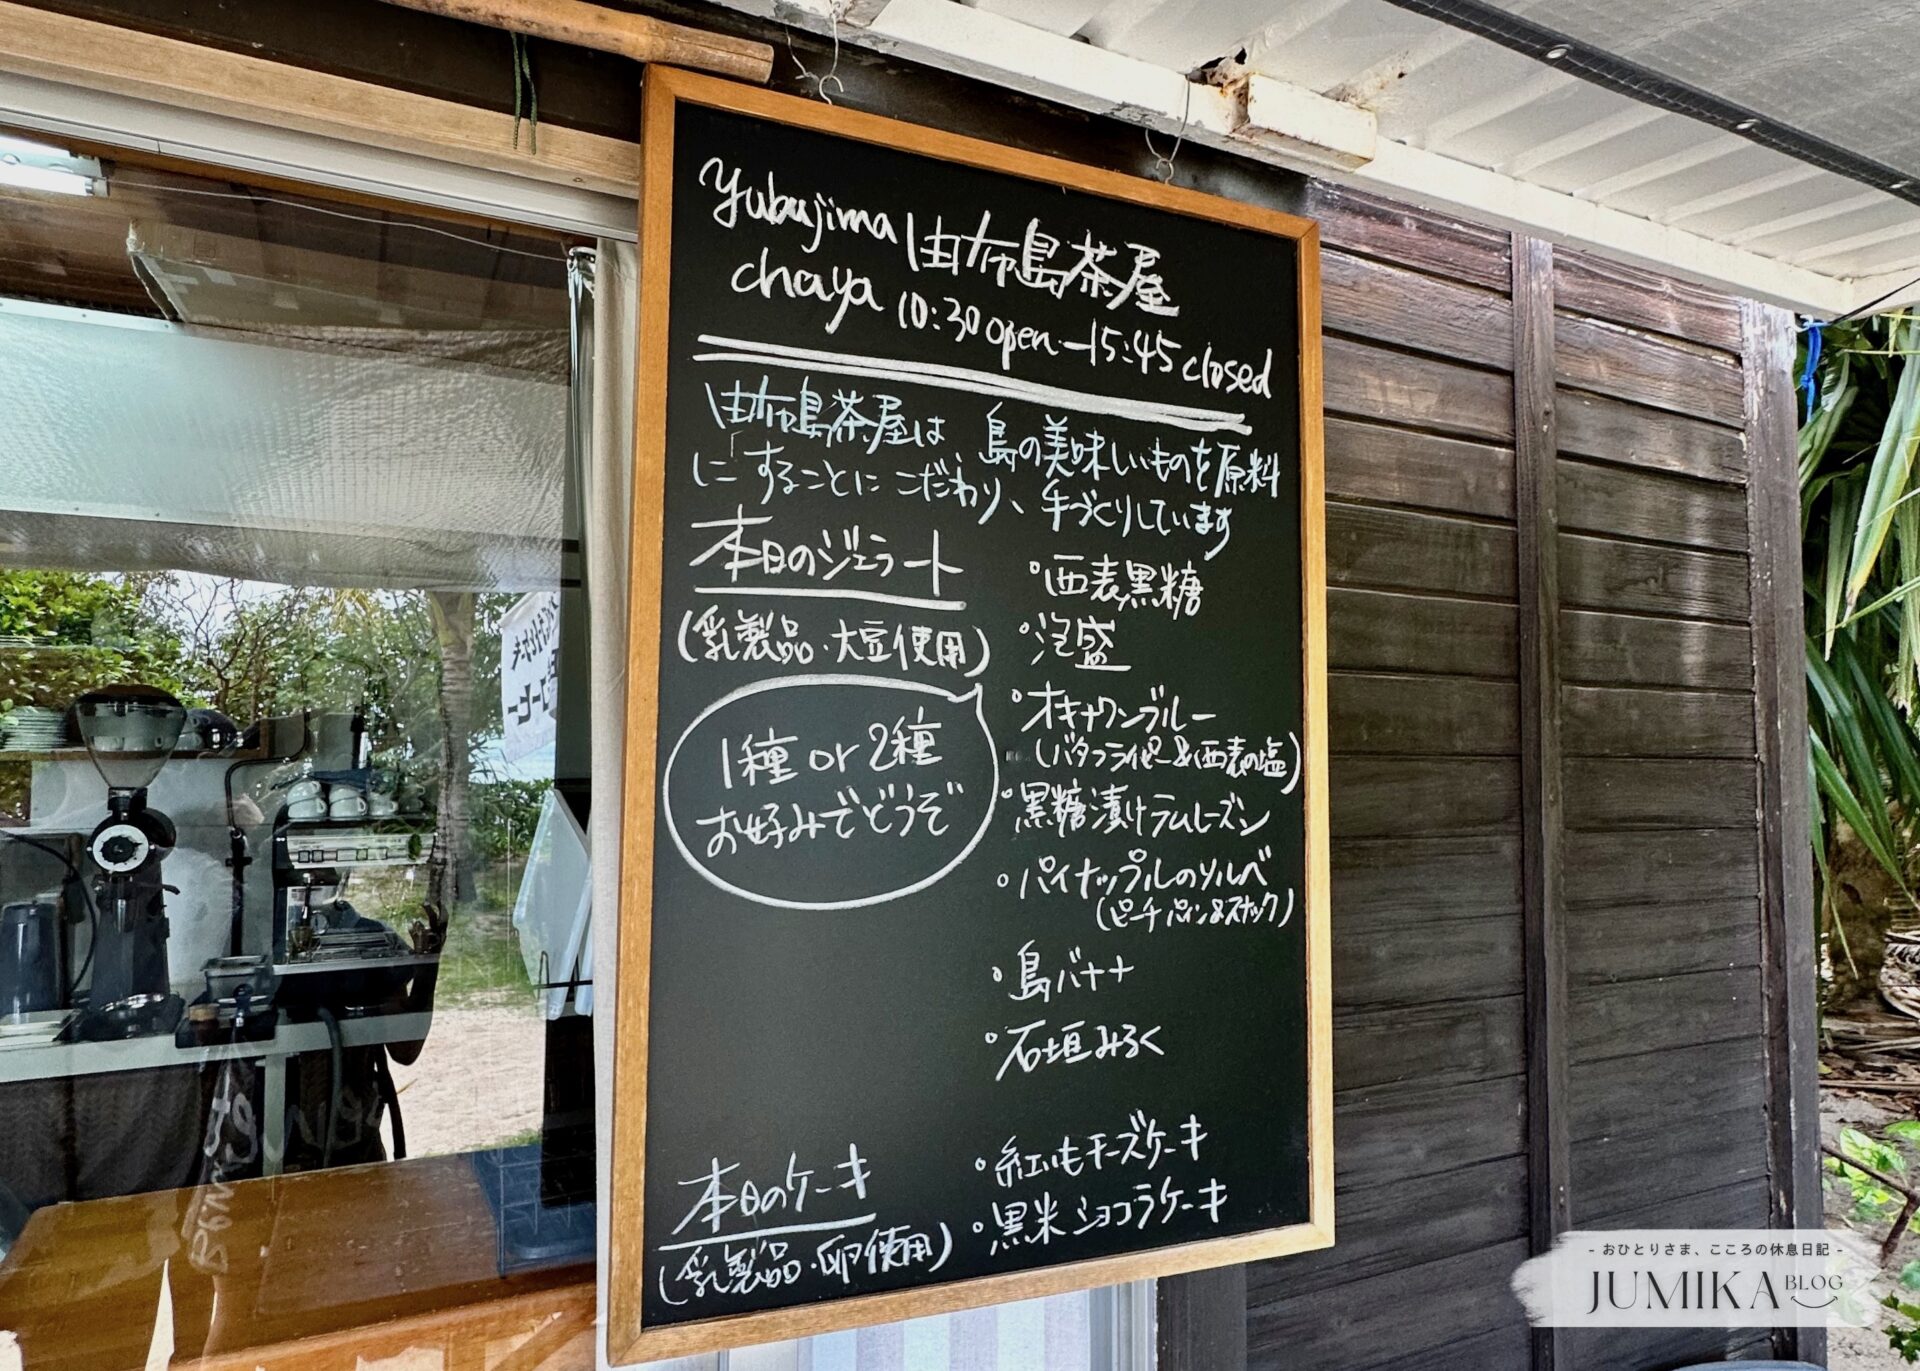 yubujima 由布島茶屋
chaya 10:30 open–15:45 closed
由布島茶屋は、島の美味しいものを原料
に「することにこだわり、手づくりしています
本日のジェラート
(乳製品・大豆使用)
1種 or 2種
お好みでどうぞ
・西表黒糖
・泡盛
・オキナワンブルー
(バタフライピー&西表の塩)
・黒糖漬けラムレーズン
・パイナップルのソルベ
(ピーチパイン&スナック)
・島バナナ
・石垣みるく
本日のケーキ
(乳製品・卵使用)
・紅いもチーズケーキ
・黒米ショコラケーキ
- おひとりさま、こころの休息日記 -
JUMIKA BLOG